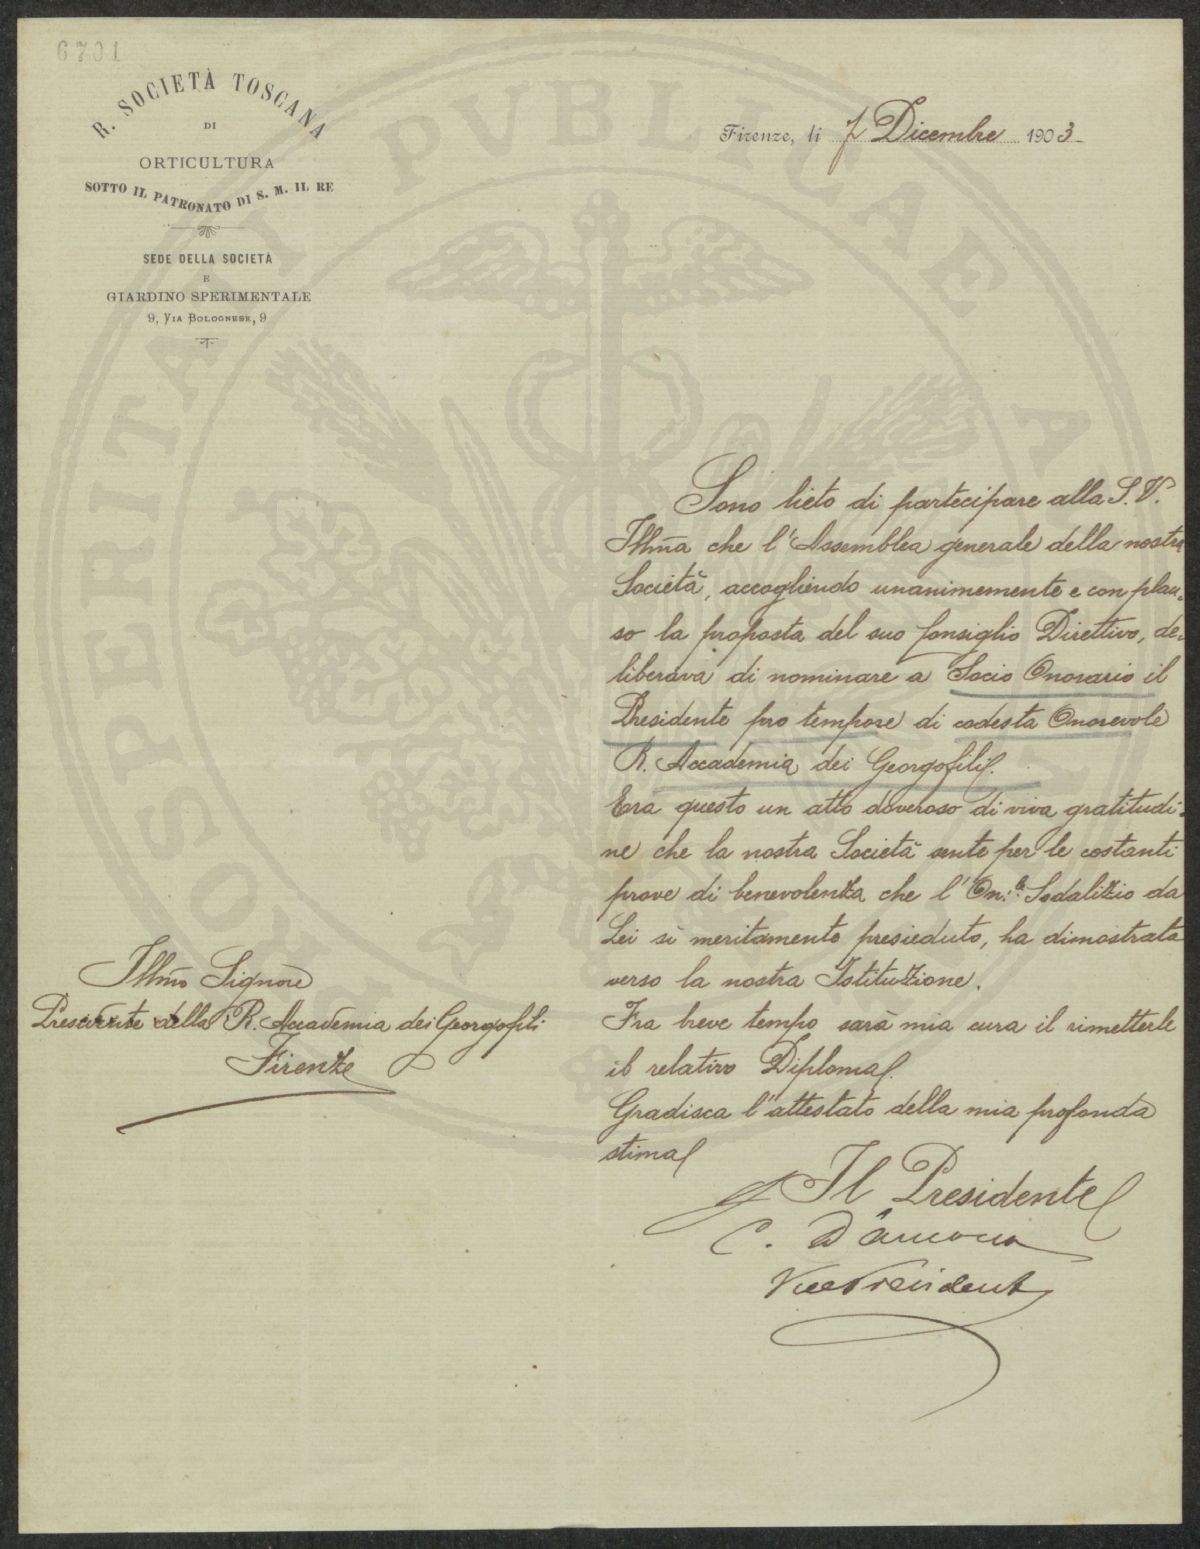 6701
R. SOCIETÀ TOSCANA
DI
ORTICULTURA
SOTTO IL PATRONATO DI S. M. IL RE
SEDE DELLA SOCIETÀ
E
GIARDINO SPERIMENTALE
9, VIA BOLOGNESE, 9
Firenze, li 7 Dicembre 1903
Sono lieto di partecipare alla S. V.
Illm̃a che l'Assemblea generale della nostra
Società, accogliendo unanimemente e con plau-
so la proposta del suo Consiglio Direttivo, de-
liberava di nominare a Socio Onorario il
Presidente pro tempore di codesta Onorevole
R. Accademia dei Georgofili.
Era questo un atto doveroso di viva gratitudi-
ne che la nostra Società sente per le costanti
prove di benevolenza che l'On.le Sodalizio da
Lei sì meritamente presieduto, ha dimostrata
verso la nostra Istituzione.
Fra breve tempo sarà mia cura il rimetterle
il relativo Diploma.
Gradisca l'attestato della mia profonda
stima
Il Presidente
C. D'Ancona
VicePresidente
Illm̃o Signore
Presidente della R. Accademia dei Georgofili
Firenze
PROSPERITATI PVBLICAE A